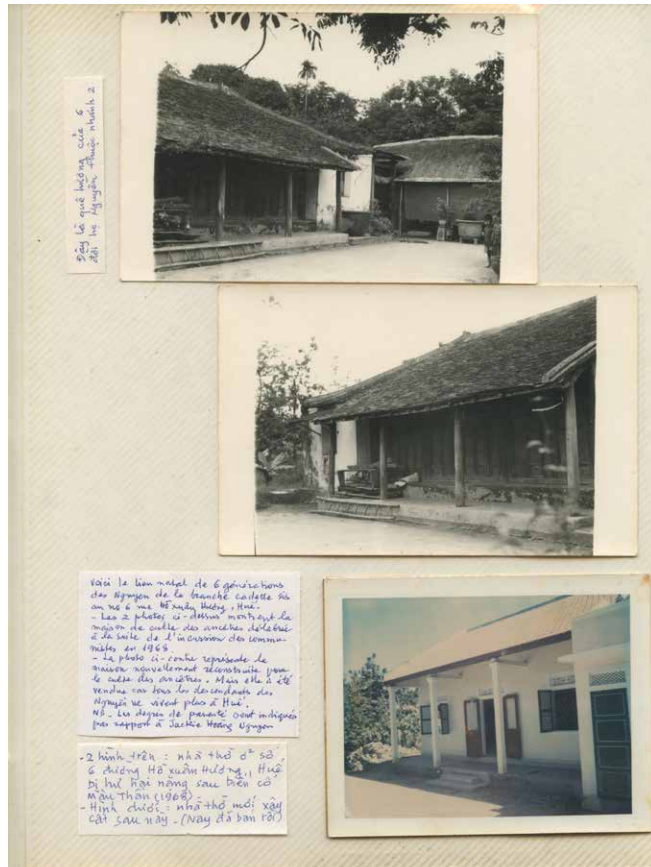 Đây là quê hương của 6
đời họ Nguyễn thuộc nhánh 2
Voici le lieu natal de 6 générations
des Nguyen de la branche cadette sis
au no 6 rue Hồ Xuân Hương, Huế.
- Les 2 photos ci-dessus montrent la
maison de culte des ancêtres délabrée
à la suite de l'incursion des commu-
nistes en 1968
- La photo ci-contre représente la
maison nouvellement reconstruite pour
le culte des ancêtres. Mais elle a été
vendue car tous les descendants des
Nguyen ne vivent plus à Huế.
NB. Les degrés de parenté sont indiqués
par rapport à Jackie Hoàng Nguyen
- 2 hình trên : nhà thờ ở số
6 đường Hồ Xuân Hương, Huế
bị hư hại nặng sau biến cố
Mậu Thân (1968) -
- Hình dưới : nhà thờ mới xây
cất sau này - (Nay đã bán rồi)